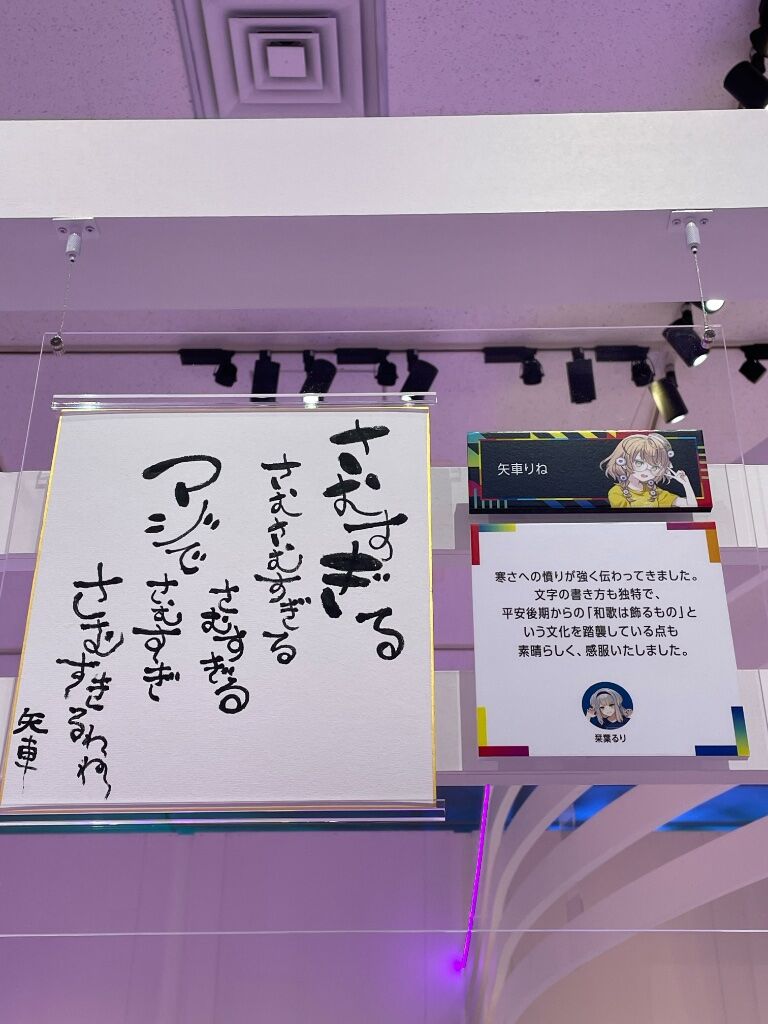 さむすぎる
さむさむすぎる
さむすぎる
マジでさむすぎ
さむすぎるわね
矢車
矢車りね
寒さへの憤りが強く伝わってきました。
文字の書き方も独特で、
平安後期からの「和歌は飾るもの」と
いう文化を踏襲している点も
素晴らしく、感服いたしました。
栞葉るり